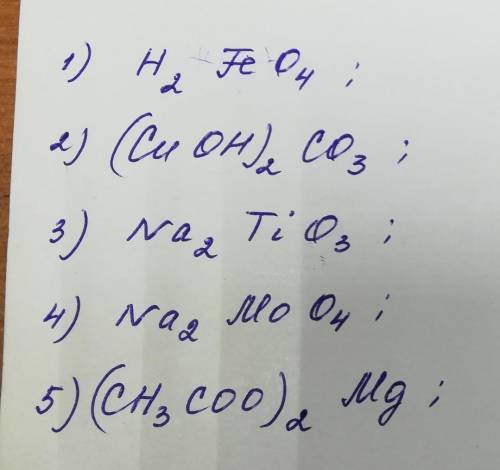 1) H₂FeO₄;
2) (CuOH)₂CO₃;
3) Na₂TiO₃;
4) Na₂MoO₄;
5) (CH₃COO)₂Mg;